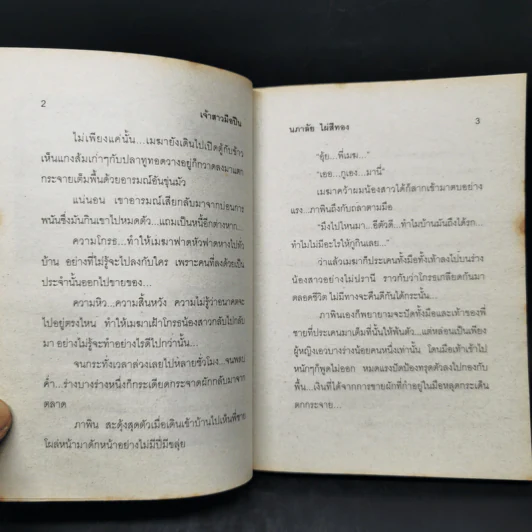 2
เจ้าสาวมือปืน
ไม่เพียงแค่นั้น...เมฆายังเดินไปเปิดตู้กับข้าว
เห็นแกงส้มเก่าๆกับปลาทูทอดวางอยู่ก็กวาดลงมาแตก
กระจายเต็มพื้นด้วยอารมณ์อันขุ่นมัว
แน่นอน เขาอารมณ์เสียกลับมาจากบ่อนการ
พนันซึ่งมันกินเขาไปหมดตัว...แถมเป็นหนี้อีกต่างหาก...
ความโกรธ...ทำให้เมฆาฟาดหัวฟาดหางไปทั่ว
บ้าน อย่างไม่รู้จะไปลงกับใคร เพราะคนที่ลงด้วยเป็น
ประจำนั้นออกไปขายของ...
ความหิว...ความสิ้นหวัง ความไม่รู้ว่าอนาคตจะ
ไปอยู่ตรงไหน ทำให้เมฆาเฝ้าโกรธน้องสาวกลับไปกลับ
มา อย่างไม่รู้จะทำอย่างไรดีไปกว่านั้น...
จนกระทั่งเวลาล่วงเลยไปหลายชั่วโมง...จนพลบ
ค่ำ...ร่างบางร่างหนึ่งก็กระเดียดกระจาดผักกลับมาจาก
ตลาด
ภาพิน สะดุ้งสุดตัวเมื่อเดินเข้าบ้านไปเห็นพี่ชาย
โผล่หน้ามาดักหน้าอย่างไม่มีปี่มีขลุ่ย
นภาลัย ไผ่สีทอง
3
"อุ้ย...พี่เมฆ..."
"เออ...กูเอง...มานี่"
เมฆาคว้าผมน้องสาวได้ก็ลากเข้ามาตบอย่าง
แรง...ภาพินถึงกับถลาตามมือ
"มึงไปไหนมา...อีตัวดี...ทำไมบ้านมันถึงได้รก...
ทำไมไม่มีอะไรให้กูกินเลย..."
ว่าแล้วเมฆาก็ประเคนทั้งมือทั้งเท้าลงไปบนร่าง
น้องสาวอย่างไม่ปรานี ราวกับว่าโกรธเกลียดกันมา
ตลอดชีวิต ไม่มีทางจะคืนดีกันได้กระนั้น...
ภาพินเองก็พยายามจะปัดทั้งมือและเท้าของพี่
ชายที่ประเคนมาเต็มที่นั้นให้พ้นตัว...แต่หล่อนเป็นเพียง
ผู้หญิงเอวบางร่างน้อยคนหนึ่งเท่านั้น โดนมือเท้าเข้าไป
หนักๆก็พูดไม่ออก หมดแรงปัดป้องทรุดตัวลงไปกองกับ
พื้น...เงินที่ได้จากการขายผักที่กำอยู่ในมือหลุดกระเด็น
ตกกระจาย...